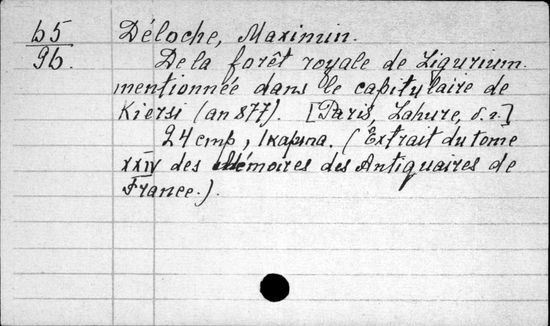 b5
96.
Déloche, Maximin.
De la forêt royale de Ligurium
mentionnée dans le capitulaire de
Kiersi (an 877). [Paris, Lahure, s. a.]
24 cmp, 1 карта. (Extrait du tome
XXIV des Mémoires des Antiquaires de
France.).